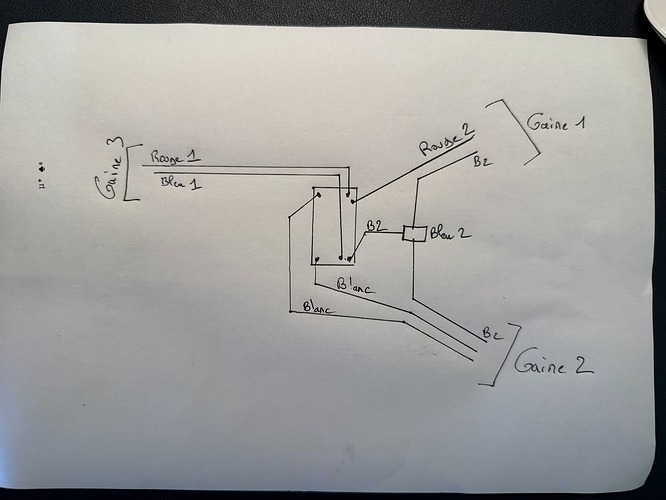 Gaine 1
Rouge 2
B2
Gaine 3
Rouge 1
Bleu 1
B2
Bleu 2
Blanc
Blanc
B2
Gaine 2